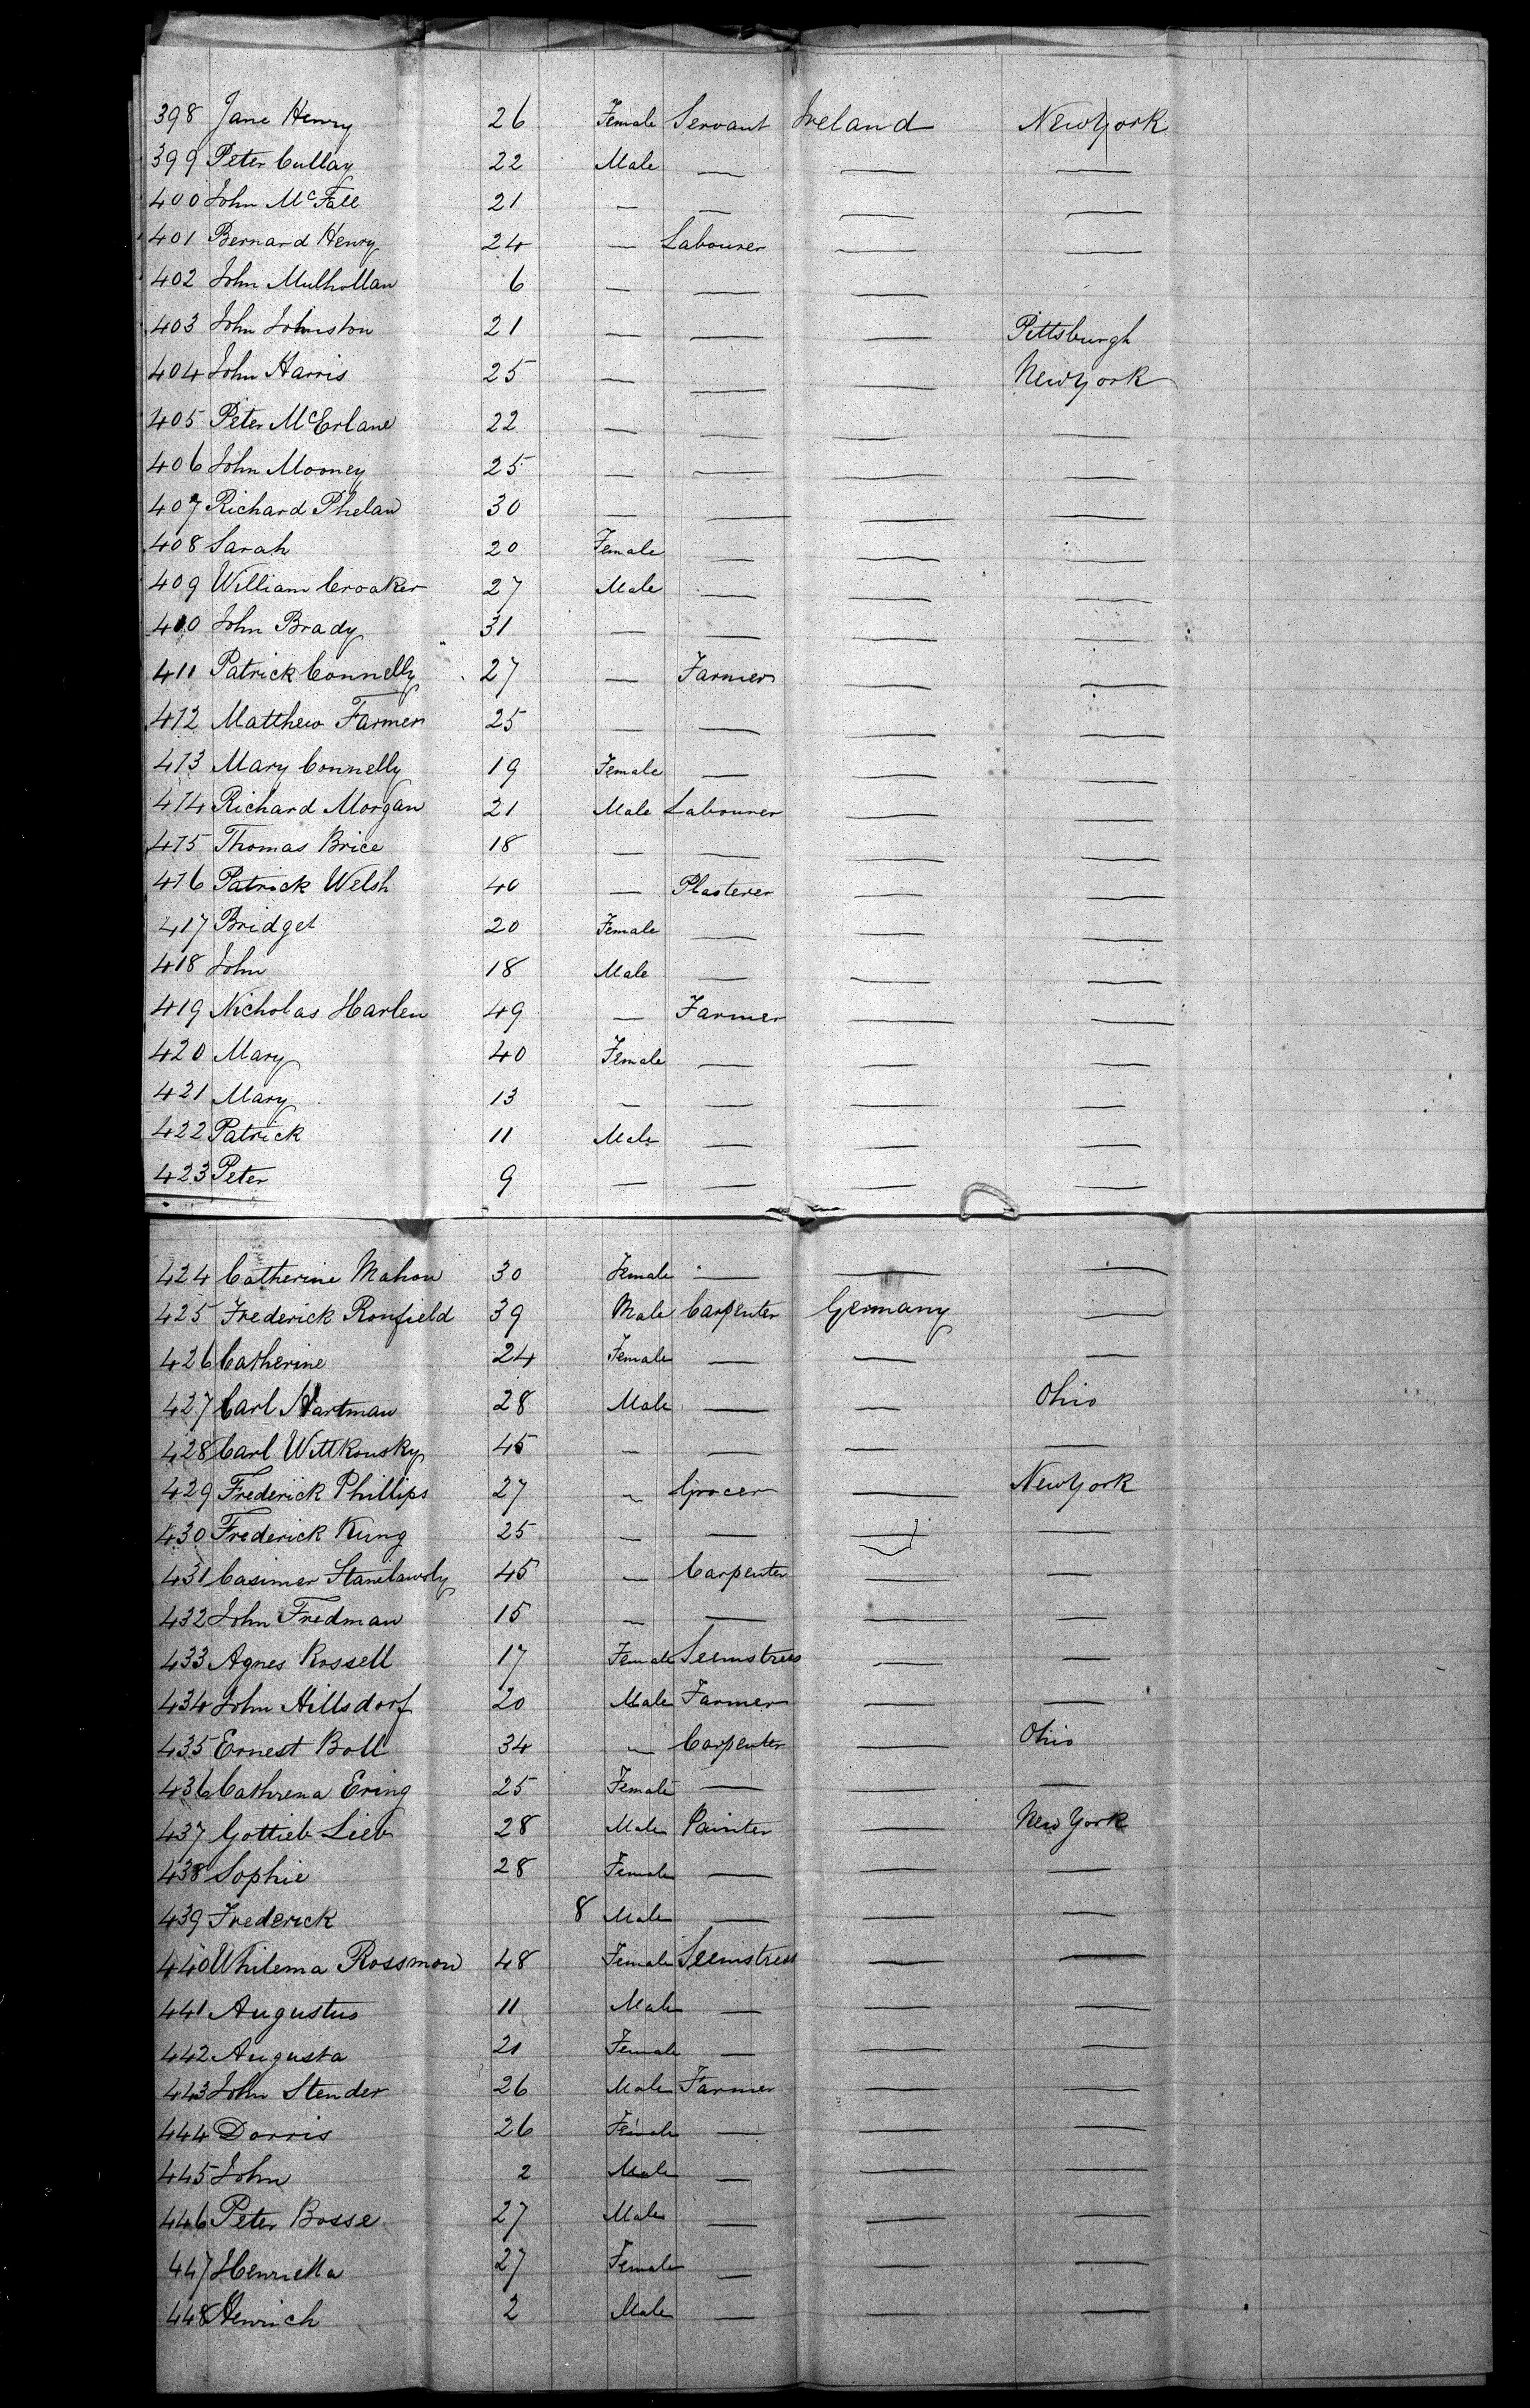 398 Jane Henry 26 Female Servant Ireland New York
399 Peter Cullay 22 Male — — —
400 John McFall 21 — — — —
401 Bernard Henry 24 — Labourer — —
402 John Mulhollan 6 — — —
403 John Johnston 21 — — — Pittsburgh
404 John Harris 25 — — — New York
405 Peter McErlane 22 — — — —
406 John Mooney 25 — — — —
407 Richard Phelan 30 — — — —
408 Sarah 20 Female — — —
409 William Croaker 27 Male — — —
410 John Brady 31 — — — —
411 Patrick Connelly 27 — Farmer — —
412 Matthew Farmer 25 — — — —
413 Mary Connelly 19 Female — — —
414 Richard Morgan 21 Male Labourer — —
415 Thomas Brice 18 — — — —
416 Patrick Welsh 40 — Plasterer — —
417 Bridget 20 Female — — —
418 John 18 Male — — —
419 Nicholas Harlen 49 — Farmer — —
420 Mary 40 Female — — —
421 Mary 13 — — — —
422 Patrick 11 Male — — —
423 Peter 9 — — — —
424 Catherine Mahon 30 Female — — —
425 Frederick Ronfield 39 Male Carpenter Germany —
426 Catherine 24 Female — — —
427 Carl Hartman 28 Male — — Ohio
428 Carl Wittkousky 45 — — — —
429 Frederick Phillips 27 — Grocer — New York
430 Frederick Kung 25 — — — —
431 Casimer Stanilawsly 45 — Carpenter — —
432 John Fredman 15 — — — —
433 Agnes Rossell 17 Female Seemstress — —
434 John Hillsdorf 20 Male Farmer — —
435 Ernest Boll 34 — Carpenter — Ohio
436 Cathrena Ering 25 Female — — —
437 Gottieb Lieb 28 Male Painter — New York
438 Sophie 28 Female — — —
439 Frederick 8 Male — — —
440 Whilema Rossmon 48 Female Seemstress — —
441 Augustus 11 Male — — —
442 Augusta 21 Female — — —
443 John Stender 26 Male Farmer — —
444 Dorris 26 Female — — —
445 John 2 Male — — —
446 Peter Bosse 27 Male — — —
447 Henrietta 27 Female — — —
448 Henrich 2 Male — — —